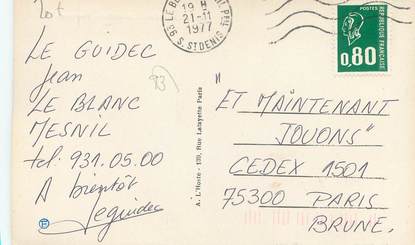 20F
19 H
21-11
1977
S. ST DENIS
POSTES
RÉPUBLIQUE FRANÇAISE
0,80
LE GUIDEC
Jean
LE BLANC
MESNIL
tel: 931.05.00
A bientôt
Leguidec
93
A. L'Hoste - 139, Rue Lafayette Paris
"ET MAINTENANT
JOUONS"
CEDEX 1501
75300 PARIS
BRUNE.